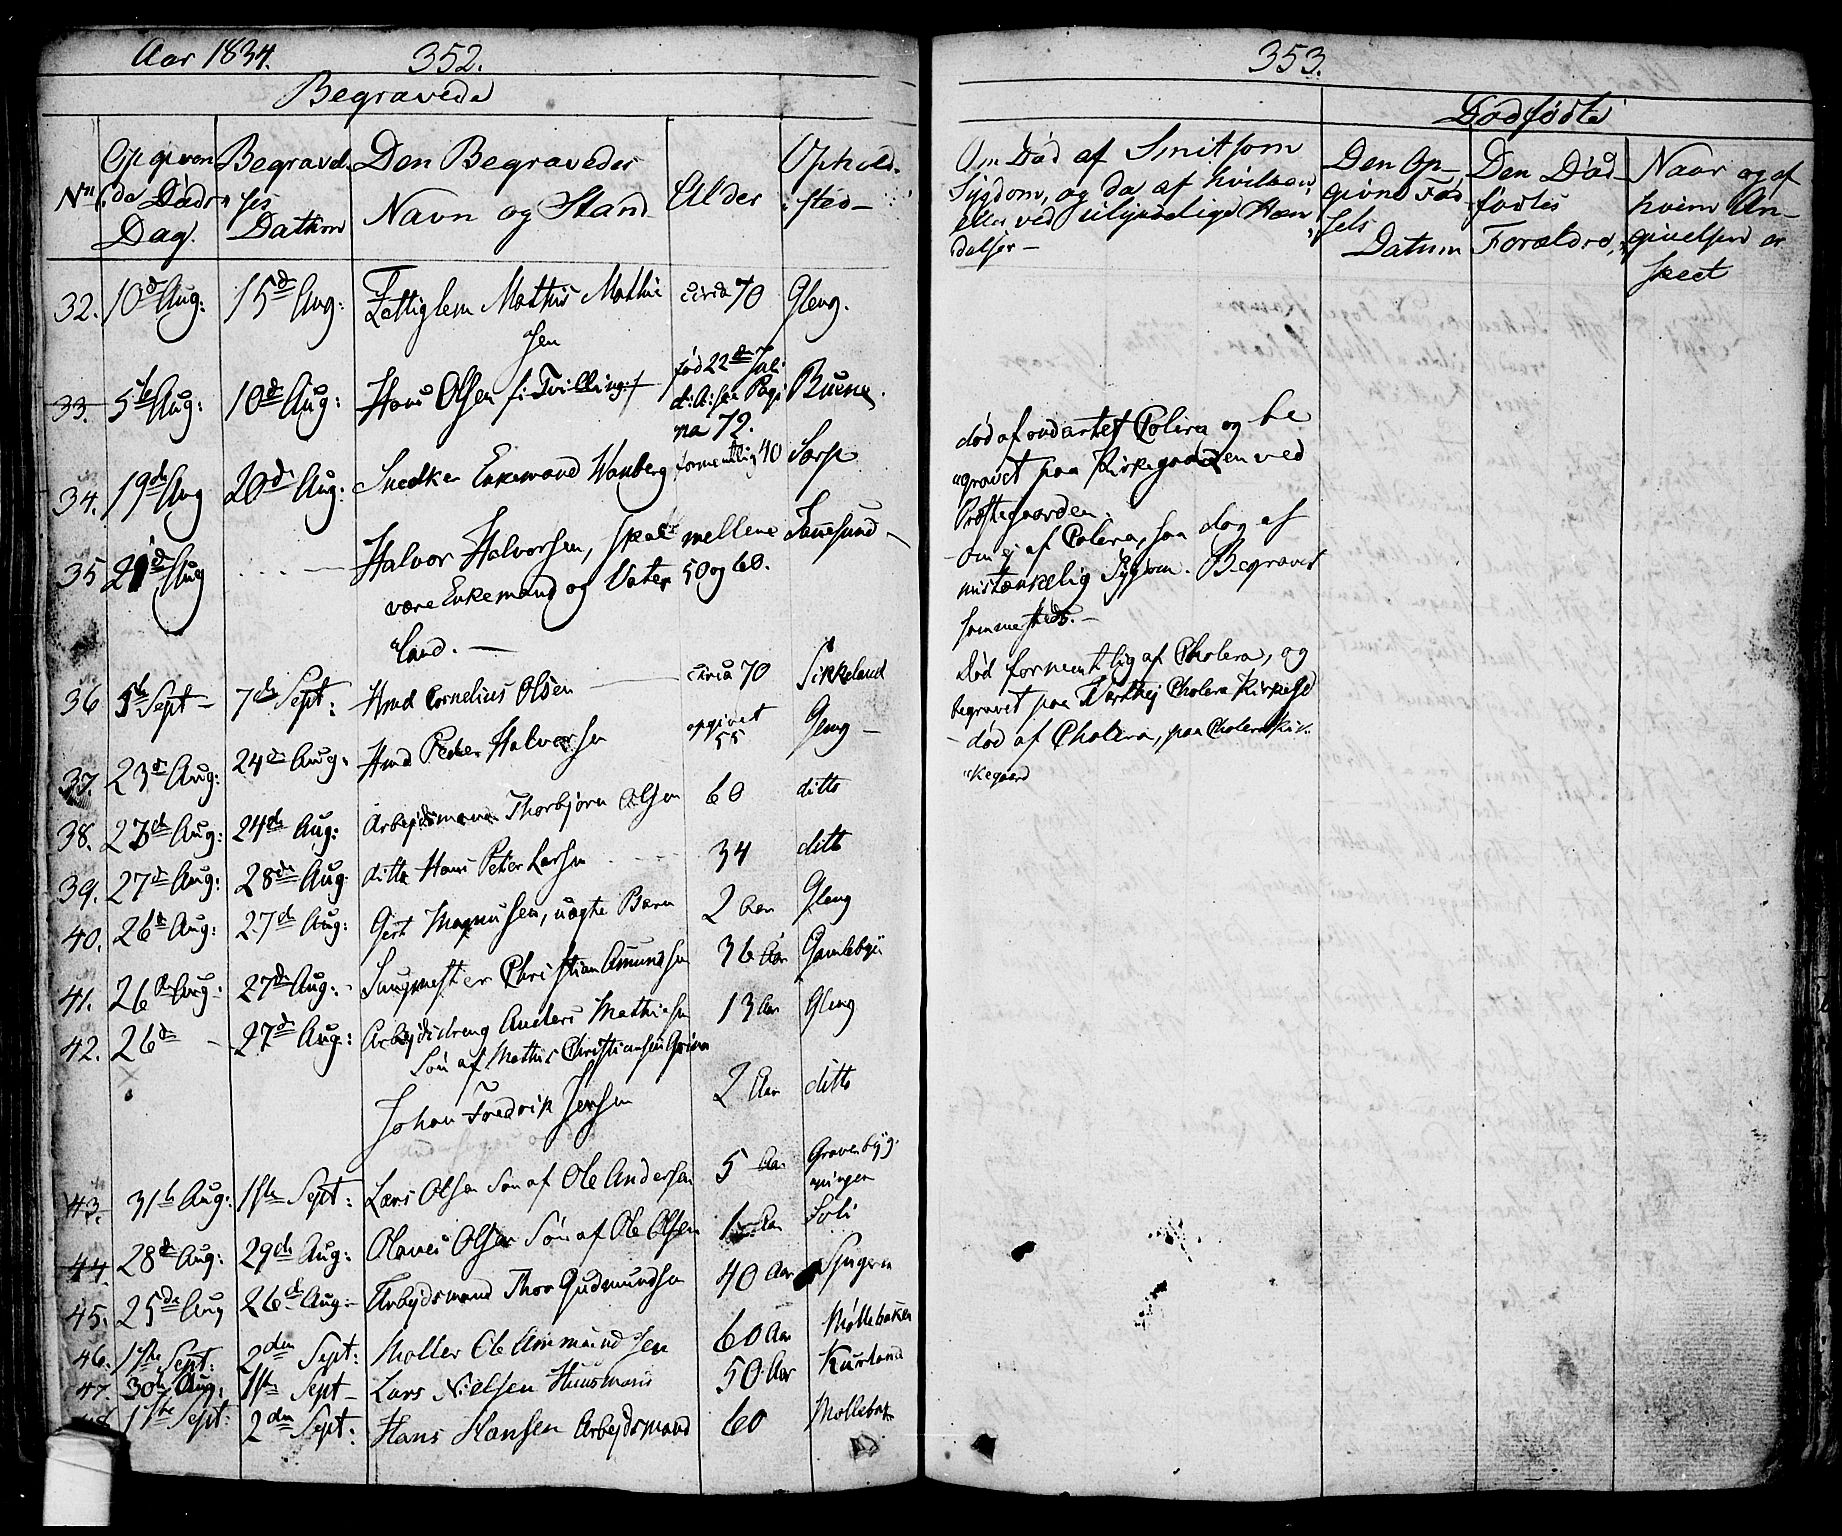 Aar 1834. 352.
Begravede
No
Opgiven
Døds
Dag.
Begravel
ses
Dathm
Den Begravedes
Navn og Stand
Alder
Ophold
sted
32. 10de Aug: 15de Aug: Mathis Mathi circa 70 Gleng.
sen
33. 5te Aug: 10de Aug: Hans Olsen /: Tvilling :/ fød 22de Juli Buene.
pa 72.
34. 19de Aug 20de Aug: Snedker Enkemand Wamberg formentlig 40 Sarp
35 21de Aug Halvor Halvorsen, skal mellem Tanesund
være Enkemand og Vater 50 og 60.
land.
36 5te Sept 7de Sept: Hmd Cornelius Olsen circa 70 Sikkeland
37. 23de Aug: 24de Aug: Hmd Peder Halvorsen opgivet Gleng
55
38. 23de Aug: 24de Aug: Arbeidsmand Thorbjørn Olsen 60 ditto
39. 27de Aug: 28de Aug: ditto Hans Peter Larsen 34 ditto
40. 26de Aug: 27de Aug: Gert Magnusen, uægte Barn 2 Aar Gleng
41. 26de Aug: 27de Aug: Saugmester Christian Amundsen 36 Aar Gamlebyen
42. 26de 27de Aug: Arbejdsdreng Anders Mathisen 13 Aar Gleng
Søn af Mathis Christiansen
Johan Fredrik Jensen 2 Aar ditto
43. 31te Aug: 1ste Sept: Lars Olsen Søn af Ole Andersen 5 Aar
ningen
44. 28de Aug: 29de Aug: Olaves Olsen Søn af Ole Olsen Aar Soli
45. 25de Aug 26de Aug: Arbejdsmand Thor Gudmundsen 40 Aar
46. 1ste Sept: 2den Sept: Møller Ole Ammundsen 60 Aar Møllebakken
47. 30te Aug: 1ste Sept Lars Nielsen Huusmand 50 Aar Kurland
48. 1ste Sept: 2den Sept: Hans Hansen Arbejdsmand 60 Møllebak
353.
Dødfødte
Om Død af Smitsom
Sygdom, og da af hvilken,
eller ved ulykkelige Hæn
delser
Den Op
givne Fød
sels
Datum
Den Død
fødtes
Forældre,
Naar og af
hvem An
givelsen er
skeet
død af ondartet Colera og be
gravet paa Kirkegaarden ved
Præstegaarden.
om ej af Colera, saa dog af
mistænkelig Sygdom. Begravet
sammesteds.
Død formentlig af Cholera, og
begravet paa Cholera Kirkegd
død af Cholera, paa Cholera Kir
kegaard